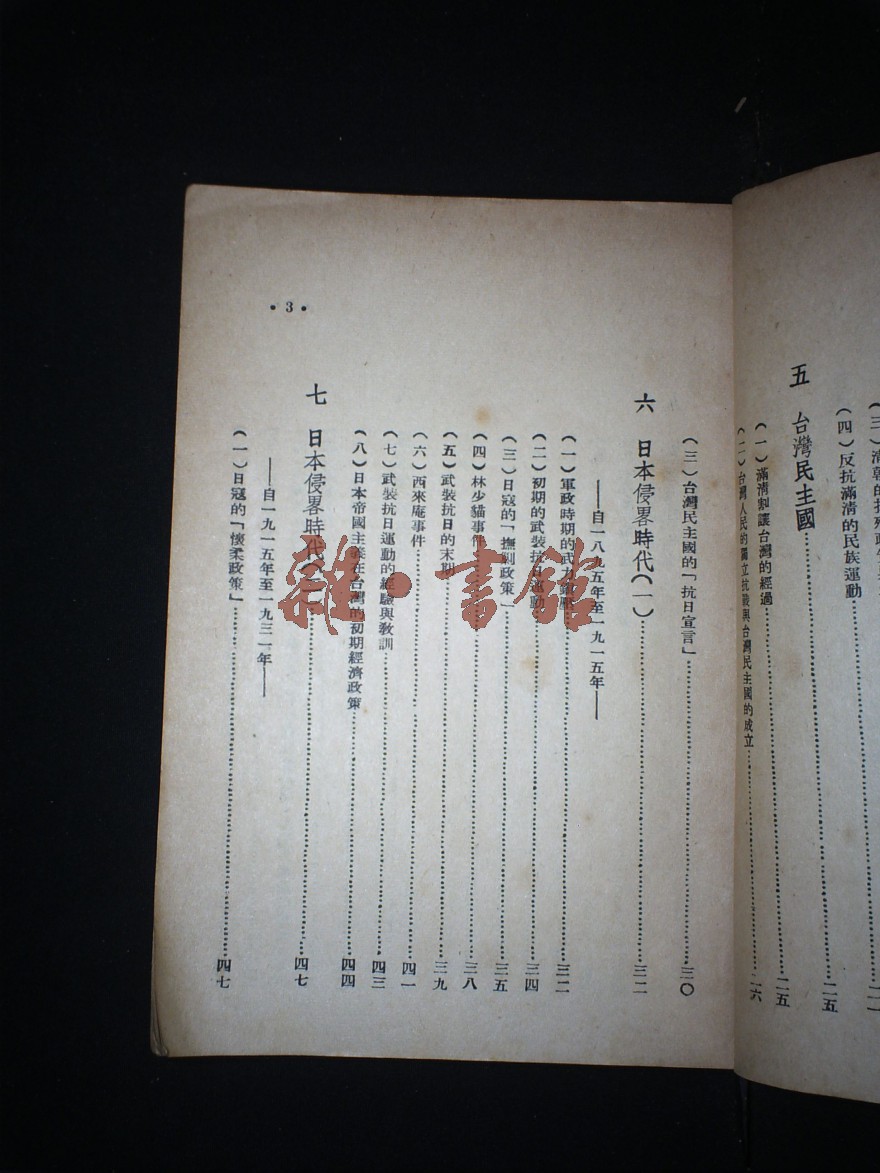 （四）反抗滿清的民族運動
五 台灣民主國……二五
（一）滿清割讓台灣的經過……二五
（二）台灣人民的獨立抗戰與台灣民主國的成立……二六
（三）台灣民主國的「抗日宣言」……三〇
六 日本侵畧時代（一）……三二
——自一八九五年至一九一五年——
（一）軍政時期的武力鎮壓……三二
（二）初期的武裝抗日運動……三四
（三）日寇的「撫剿政策」……三五
（四）林少貓事件……三八
（五）武裝抗日的末期……三九
（六）西來庵事件……四一
（七）武裝抗日運動的經驗與敎訓……四三
（八）日本帝國主義在台灣的初期經濟政策……四四
七 日本侵畧時代（二）……四七
——自一九一五年至一九三一年——
（一）日寇的「懷柔政策」……四七
• 3 •
雜·書館